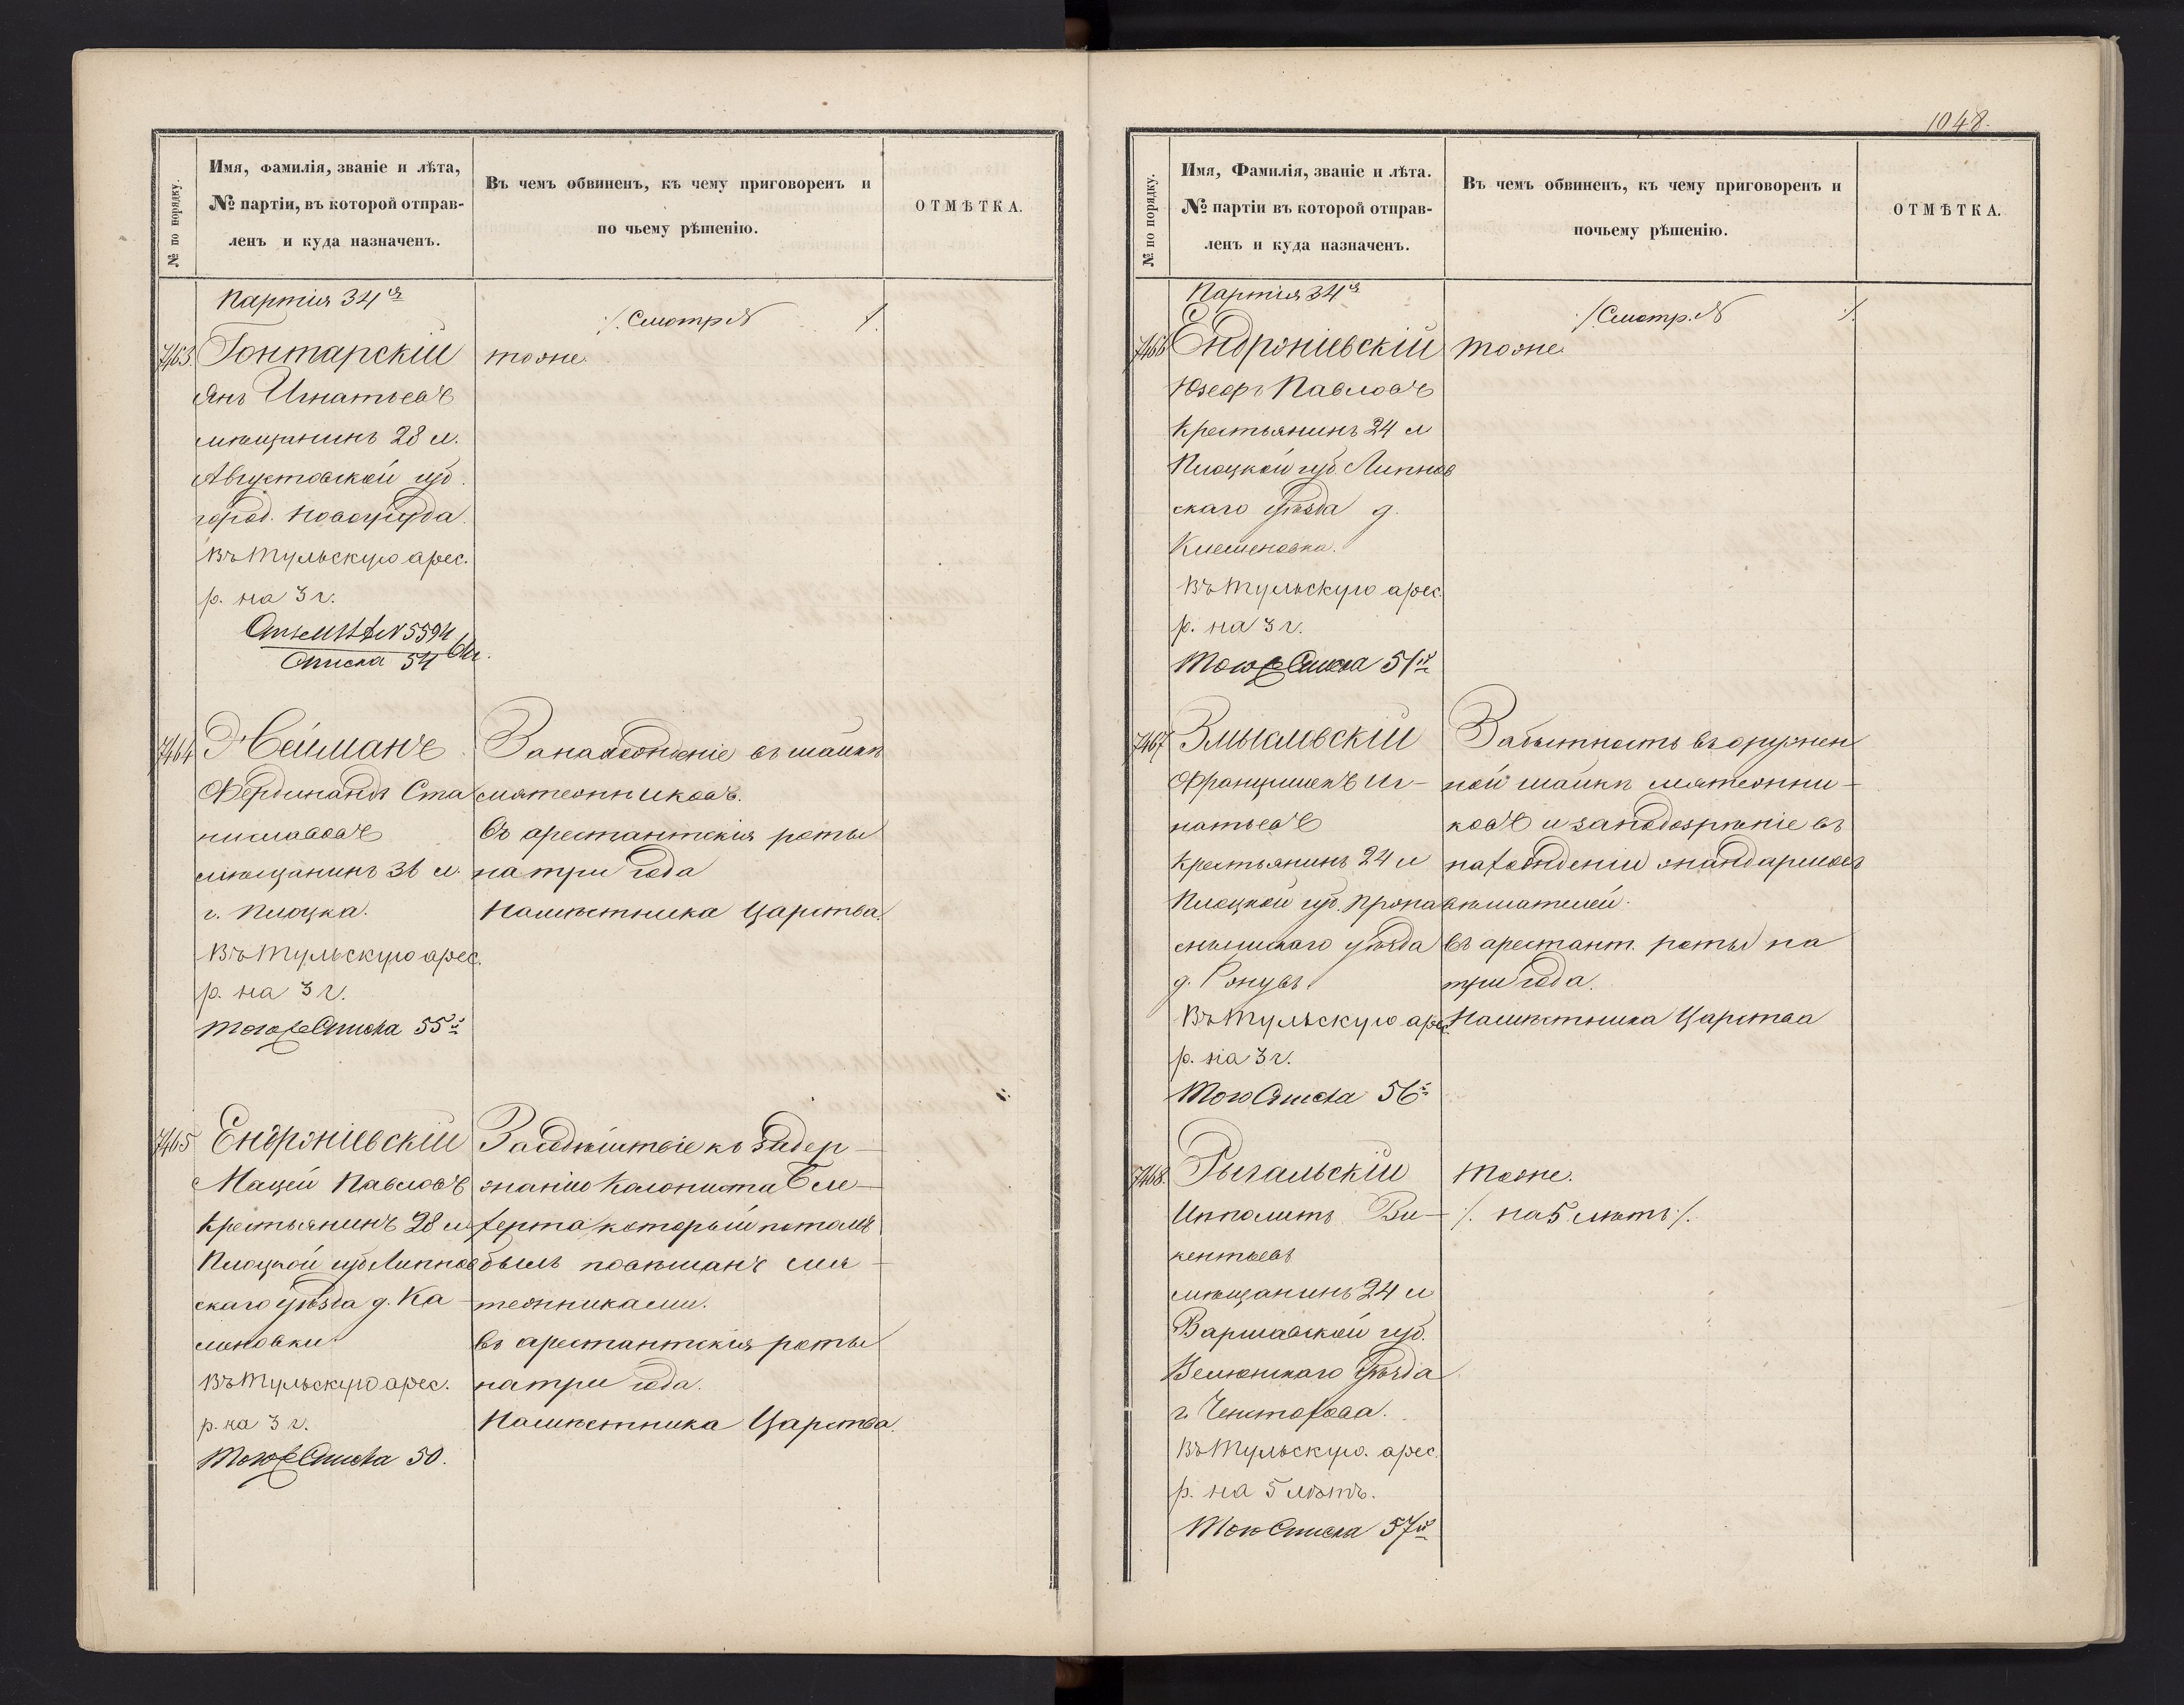 № по порядку.
Имя, фамилія, званіе и лѣта,
№ партіи, въ которой отправ-
ленъ и куда назначенъ.
Въ чемъ обвиненъ, къ чему приговоренъ и
по чьему рѣшенію.
ОТМѢТКА.
Партія 34я
/. Смотр. № /.
7463. Гонтарскій
тоже.
Янъ Игнатьевъ
мѣщанинъ 28 л.
Августовской губ.
город.
въ Тульскую арес.
р. на 3 г.
№ 5594
Списка 54
7464 Нейманъ
Фердинандъ Ста
ниславовъ
мѣщанинъ 36 л.
г. Плоцка.
Въ Тульскую арес.
р. на 3 г.
того же Списка 55й
За нахожденіе въ шайкѣ
мятежниковъ.
въ арестантскія роты
на три года
Намѣстника Царства.
7465 Ендржіевскій
Мацей Павловъ
крестьянинъ 28 л
Плоцкой губ Липнов
скаго уѣзда д. Ка-
меновки
въ Тульскую арес.
р. на 3 г.
Того же Списка 50.
За содѣйствіе къ задер-
жанію колониста
который потомъ
былъ повѣшанъ мя-
тежниками.
въ арестантскія роты
на три года.
Намѣстника Царства.
1048.
№ по порядку.
Имя, Фамилія, званіе и лѣта.
№ партіи въ которой отправ-
ленъ и куда назначенъ.
Въ чемъ обвиненъ, къ чему приговоренъ и
почьему рѣшенію.
ОТМѢТКА.
Партія 34я
/. Смотр. № /.
7466 Ендржіевскій
тоже.
Юзефъ Павловъ
крестьянинъ 24 л
Плоцкой губ. Липнов
скаго уѣзда д.
Въ Тульскую арес.
р. на 3 г.
Того же Списка 51й
7467 Змысловскій
Францишекъ Иг-
натьевъ
крестьянинъ 24 л
Плоцкой губ. Пра
снышскаго уѣзда
д.
Въ Тульскую арес.
р. на 3 г.
Того Списка 56й
За бытность въ вооружен
ной шайкѣ мятежни-
ковъ и заподозрѣніе въ
нахожденіи жандармовъ
вѣшателей.
въ арестант. роты на
три года.
Намѣстника Царства
7468. Рыгальскій
тоже.
Ипполитъ Ви-
/. на 5 лѣтъ /.
кентьевъ
мѣщанинъ 24 л
Варшавской губ.
Велюнскаго уѣзда
г. Ченстохова.
Въ Тульскую. арес.
р. на 5 лѣтъ.
Того Списка 57й